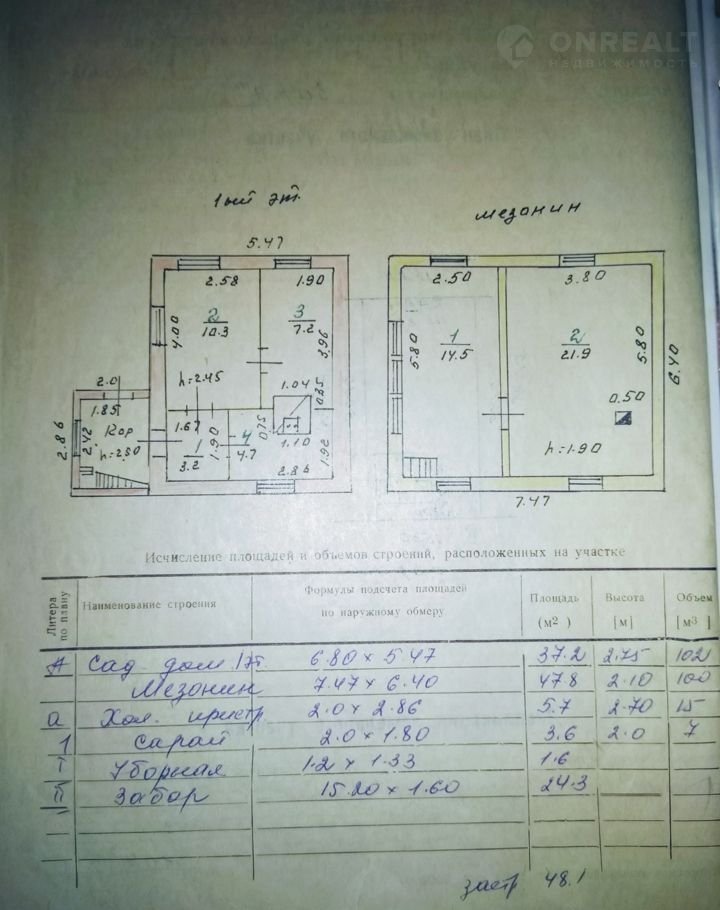 ONREALT
НЕДВИЖИМОСТЬ
1ый эт.
мезонин
5.47
2.58 1.90
2.50 3.80
4.00
2
10.3
3
7.2
3.96
5.80
1
14.5
2
21.9
5.80
6.40
h=2.45
2.0
1.85
1.04
0.35
0.50
2.86
2.42
Кор
h=2.30
1.67
1
3.2
1.90
4
4.7
0.75
1.10
2.86
1.92
h=1.90
7.47
Исчисление площадей и объемов строений, расположенных на участке
Литера по плану
Наименование строения
Формулы подсчета площадей по наружному обмеру
Площадь (м2)
Высота [м]
Объем [м3]
А Сад. дом 1эт. 6.80 × 5.47 37.2 2.75 102
Мезонин 7.47 × 6.40 47.8 2.10 100
а Хол. пристр 2.0 × 2.86 5.7 2.70 15
1 Сарай 2.0 × 1.80 3.6 2.0 7
I Уборная 1.2 × 1.33 1.6
II Забор 15.20 × 1.60 24.3
застр 48.1